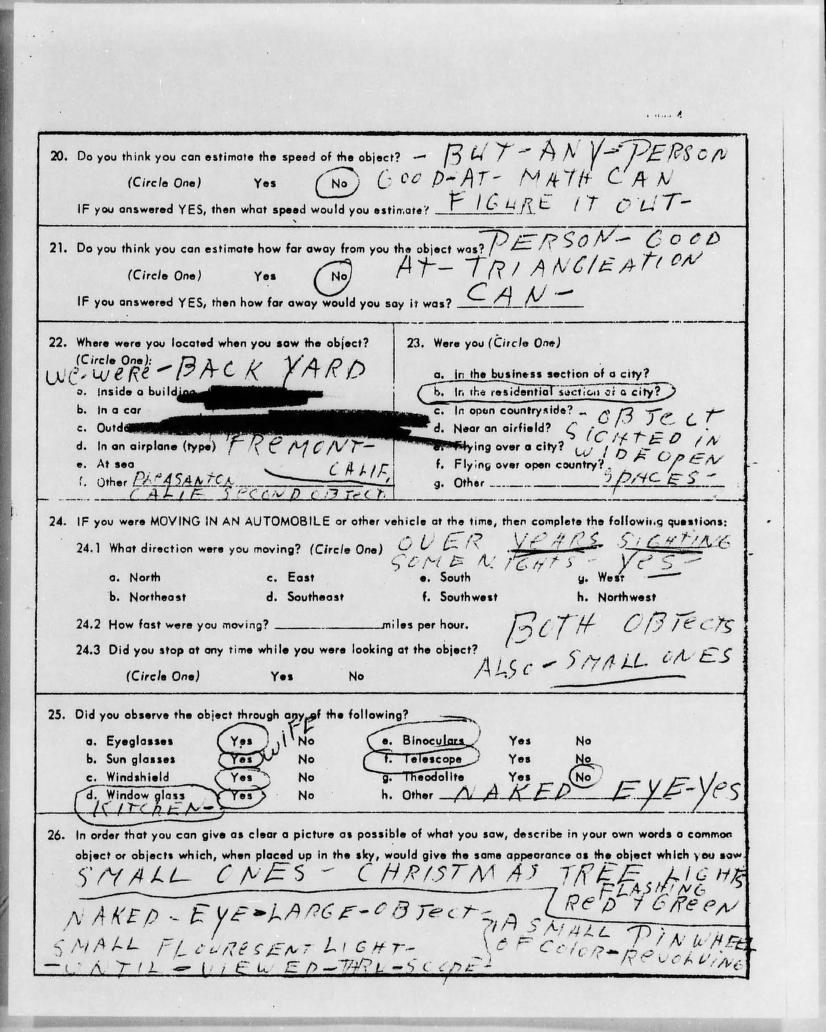 20. Do you think you can estimate the speed of the object? - BUT-ANY-PERSON
(Circle One) Yes No GOOD-AT-MATH CAN
IF you answered YES, then what speed would you estimate? FIGURE IT OUT-
21. Do you think you can estimate how far away from you the object was? PERSON-GOOD
(Circle One) Yes No AT-TRIANGLEATION
IF you answered YES, then how far away would you say it was? CAN-
22. Where were you located when you saw the object?
(Circle One):
WE-WERE-BACK YARD
a. Inside a building
b. In a car
c.
d. In an airplane (type) FREMONT-
e. At sea CALIF.
f. Other PLEASANTON
CALIF SECOND OBJECT
23. Were you (Circle One)
a. In the business section of a city?
b. In the residential section of a city?
c. In open countryside? - OBJECT
d. Near an airfield? SIGHTED IN
e. Flying over a city? WIDE OPEN
f. Flying over open country? SPACES-
g. Other
24. IF you were MOVING IN AN AUTOMOBILE or other vehicle at the time, then complete the following questions:
24.1 What direction were you moving? (Circle One) OVER YEARS SIGHTING
SOME NIGHTS-YES-
a. North c. East e. South g. West
b. Northeast d. Southeast f. Southwest h. Northwest
24.2 How fast were you moving? miles per hour. BOTH OBJECTS
24.3 Did you stop at any time while you were looking at the object? ALSO-SMALL ONES
(Circle One) Yes No
25. Did you observe the object through any of the following?
a. Eyeglasses Yes No e. Binoculars Yes No
WIFE
b. Sun glasses Yes No f. Telescope Yes No
c. Windshield Yes No g. Theodolite Yes No
d. Window glass Yes No h. Other NAKED EYE-YES
KITCHEN-
26. In order that you can give as clear a picture as possible of what you saw, describe in your own words a common
object or objects which, when placed up in the sky, would give the same appearance as the object which you saw.
SMALL ONES - CHRISTMAS TREE LIGHTS
FLASHING
RED + GREEN
NAKED-EYE-LARGE-OBJECT-
A SMALL PINWHEEL
SMALL FLOURESENT LIGHT-
OF COLOR-REVOLVING
-UNTIL-VIEWED-THRU-SCOPE-